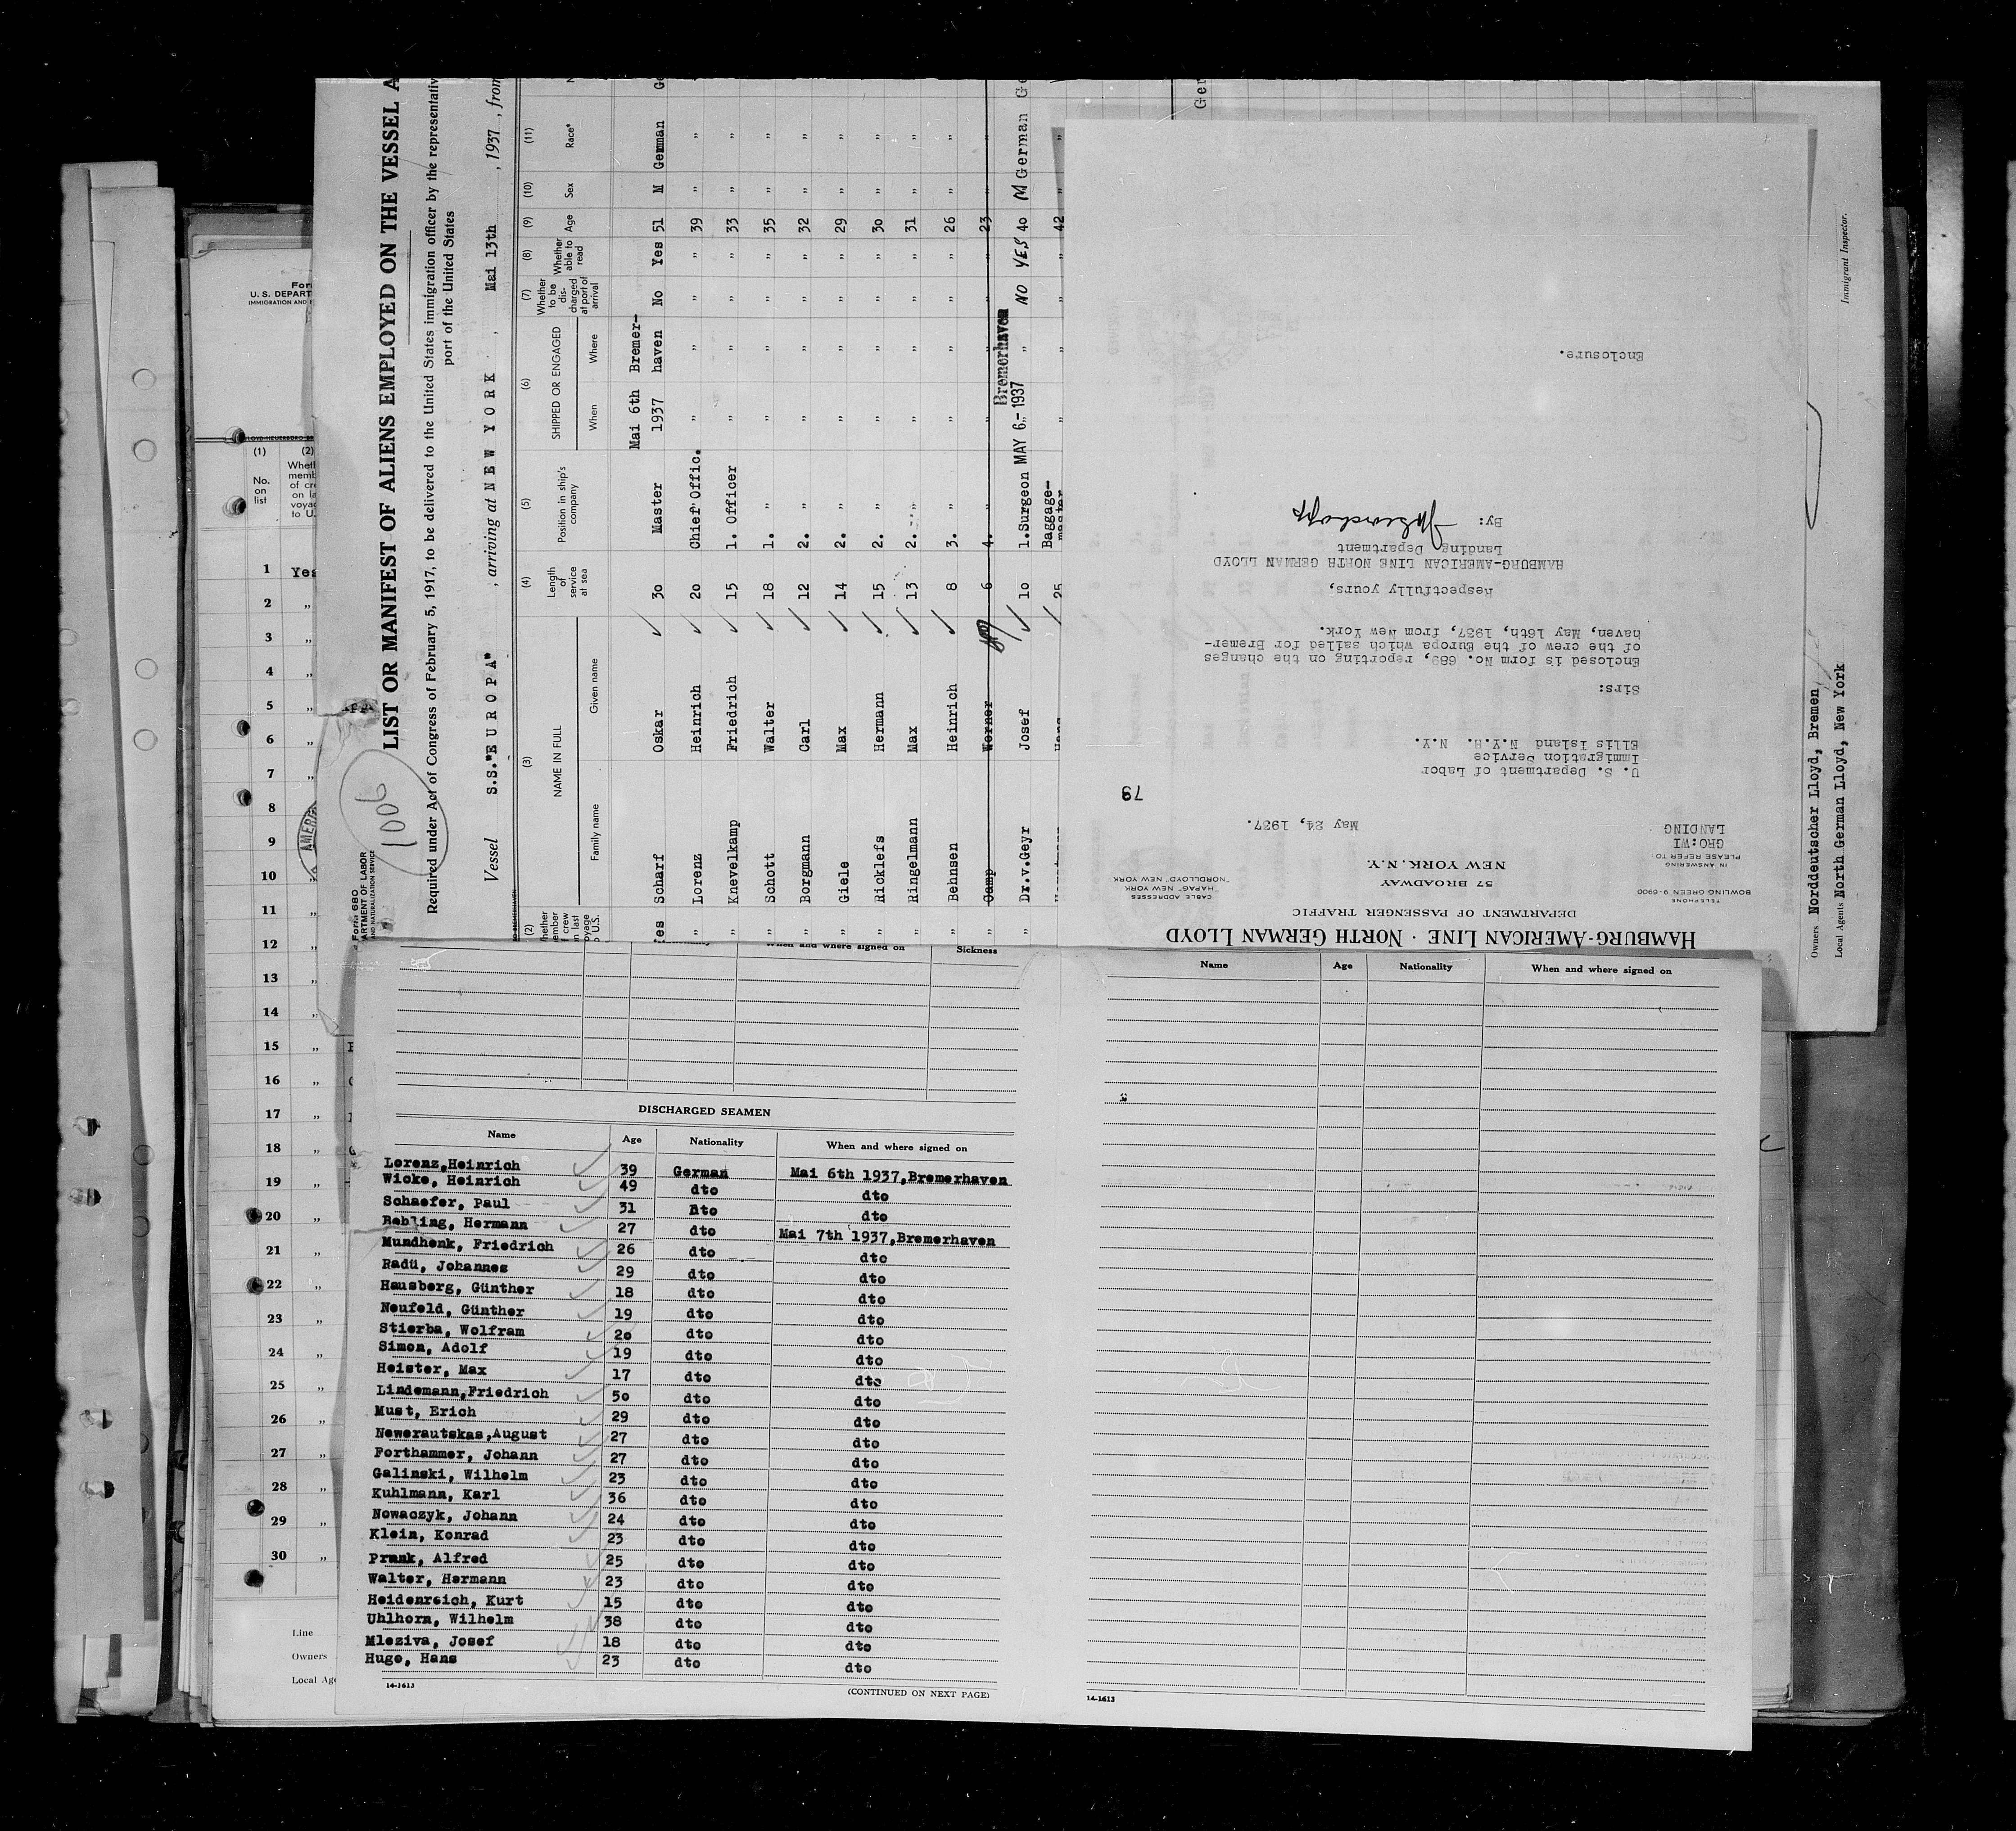 LIST OR MANIFEST OF ALIENS EMPLOYED ON THE VESSEL A
Required under Act of Congress of February 5, 1917, to be delivered to the United States immigration officer by the representativ
port of the United States
Vessel S.S."E U R O P A" , arriving at N E W Y O R K , Mai 13th , 1937 , from
1006
Form 680
(2) (3) (4) (5) (6) (7) (8) (9) (10) (11)
NAME IN FULL Length of service at sea Position in ship's company SHIPPED OR ENGAGED Whether to be discharged at port of arrival Whether able to read Age Sex Race*
Family name Given name When Where
Mai 6th Bremer-
Yes Scharf Oskar 30 Master 1937 haven No Yes 51 M German
" Lorenz Heinrich 20 Chief Offic. " " " " 39 " "
" Knevelkamp Friedrich 15 1. Officer " " " " 33 " "
" Schott Walter 18 1. " " " " " 35 " "
" Borgmann Carl 12 2. " " " " " 32 " "
" Giele Max 14 2. " " " " " 29 " "
" Ricklefs Hermann 15 2. " " " " " 30 " "
" Ringelmann Max 13 2. " " " " " 31 " "
" Behnsen Heinrich 8 3. " " " " " 26 " "
" Camp Werner 6 4. " " " " " 23 " "
Bremerhaven
" Dr.v.Geyr Josef 10 1.Surgeon MAY 6.- 1937 " NO YES 40 M German
Hans 25 Baggage-master " " " " 42 "
HAMBURG-AMERICAN LINE · NORTH GERMAN LLOYD
DEPARTMENT OF PASSENGER TRAFFIC
57 BROADWAY
NEW YORK, N.Y.
TELEPHONE
BOWLING GREEN 9-6900
CABLE ADDRESSES
"HAPAG" NEW YORK
"NORDLLOYD" NEW YORK
IN ANSWERING
PLEASE REFER TO:
GRO:WI
LANDING
May 24, 1937.
79
U. S. Department of Labor
Immigration Service
Ellis Island N.Y.H. N.Y.
Sirs:
Enclosed is form No. 689, reporting on the changes
of the crew of the Europa which sailed for Bremer-
haven, May 16th, 1937, from New York.
Respectfully yours,
HAMBURG-AMERICAN LINE NORTH GERMAN LLOYD
Landing Department
By:
Enclosure.
Owners Norddeutscher Lloyd, Bremen
Local Agents North German Lloyd, New York
Immigrant Inspector.
U. S. DEPART
(1) (2)
No. on list
1 Yes
2 "
3 "
4 "
5 "
6 "
7 "
8 "
9 "
10 "
11 "
12 "
13 "
14 "
15 "
16 "
17 "
18 "
19 "
20 "
21 "
22 "
23 "
24 "
25 "
26 "
27 "
28 "
29 "
30 "
Line
Owners
Local Age
When and where signed on Sickness
DISCHARGED SEAMEN
Name Age Nationality When and where signed on
Lorenz,Heinrich 39 German Mai 6th 1937,Bremerhaven
Wicke, Heinrich 49 dto dto
Schaefer, Paul 31 Dto dto
Rebling, Hermann 27 dto Mai 7th 1937,Bremerhaven
Mundhenk, Friedrich 26 dto dto
Radü, Johannes 29 dto dto
Hausberg, Günther 18 dto dto
Neufeld, Günther 19 dto dto
Stierba, Wolfram 20 dto dto
Simon, Adolf 19 dto dto
Heister, Max 17 dto dto
Lindemann,Friedrich 50 dto dto
Must, Erich 29 dto dto
Newerautskas,August 27 dto dto
Forthammer, Johann 27 dto dto
Galinski, Wilhelm 23 dto dto
Kuhlmann, Karl 36 dto dto
Nowaczyk, Johann 24 dto dto
Klein, Konrad 23 dto dto
Prank, Alfred 25 dto dto
Walter, Hermann 23 dto dto
Heidenreich, Kurt 15 dto dto
Uhlhorn, Wilhelm 38 dto dto
Mleziva, Josef 18 dto dto
Huge, Hans 23 dto dto
14-1613
(CONTINUED ON NEXT PAGE)
Name Age Nationality When and where signed on
14-1613